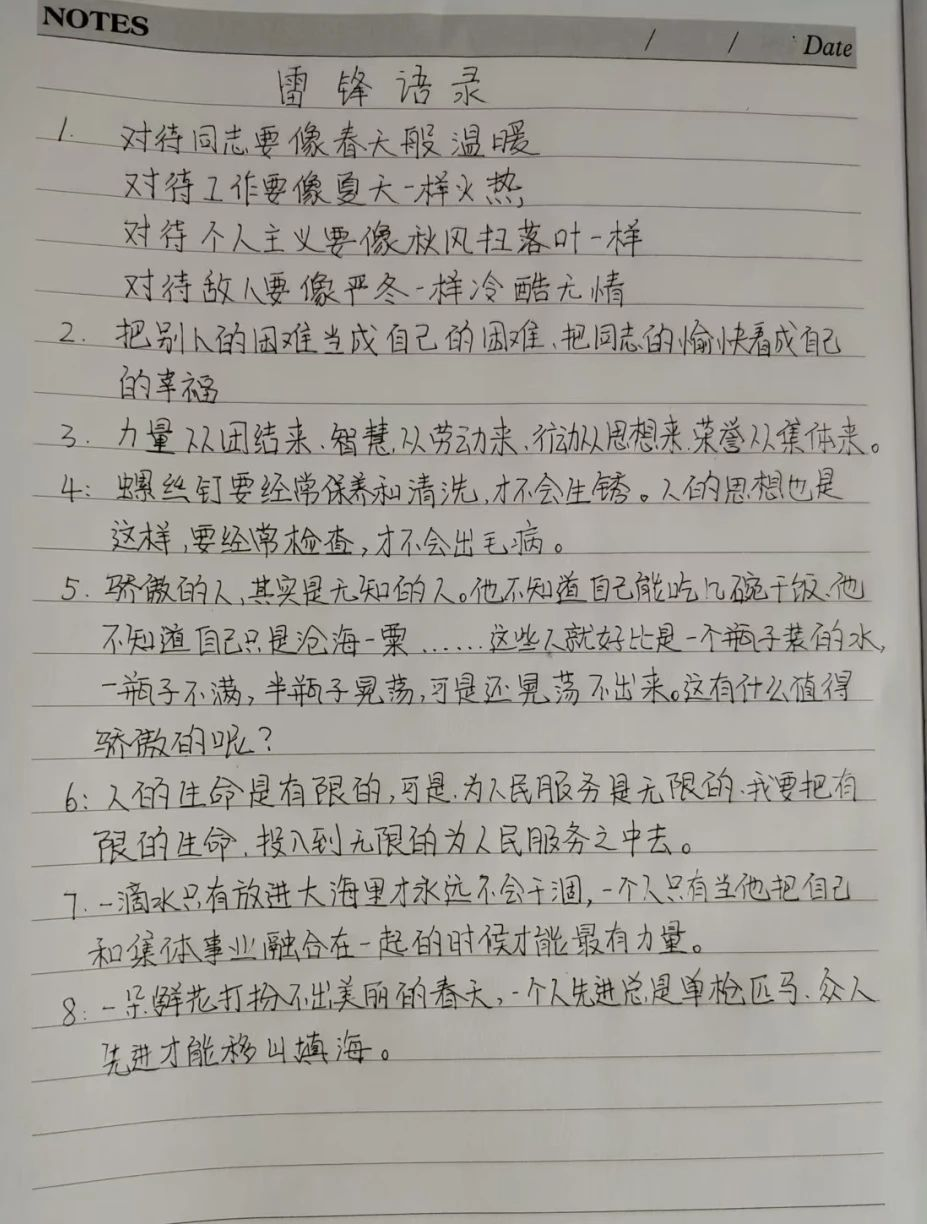 NOTES
/ / Date
雷锋语录
1. 对待同志要像春天般温暖
对待工作要像夏天一样火热,
对待个人主义要像秋风扫落叶一样
对待敌人要像严冬一样冷酷无情
2. 把别人的困难当成自己的困难、把同志的愉快看成自己
的幸福
3. 力量从团结来、智慧从劳动来、行动从思想来、荣誉从集体来。
4: 螺丝钉要经常保养和清洗,才不会生锈。人的思想也是
这样,要经常检查,才不会出毛病。
5. 骄傲的人,其实是无知的人。他不知道自己能吃几碗干饭、他
不知道自己只是沧海一粟……这些人就好比是一个瓶子装的水,
一瓶子不满,半瓶子晃荡,可是还晃荡不出来。这有什么值得
骄傲的呢?
6: 人的生命是有限的,可是、为人民服务是无限的、我要把有
限的生命、投入到无限的为人民服务之中去。
7. 一滴水只有放进大海里才永远不会干涸,一个人只有当他把自己
和集体事业融合在一起的时候才能最有力量。
8: 一朵鲜花打扮不出美丽的春天,一个人先进总是单枪匹马、众人
先进才能移山填海。